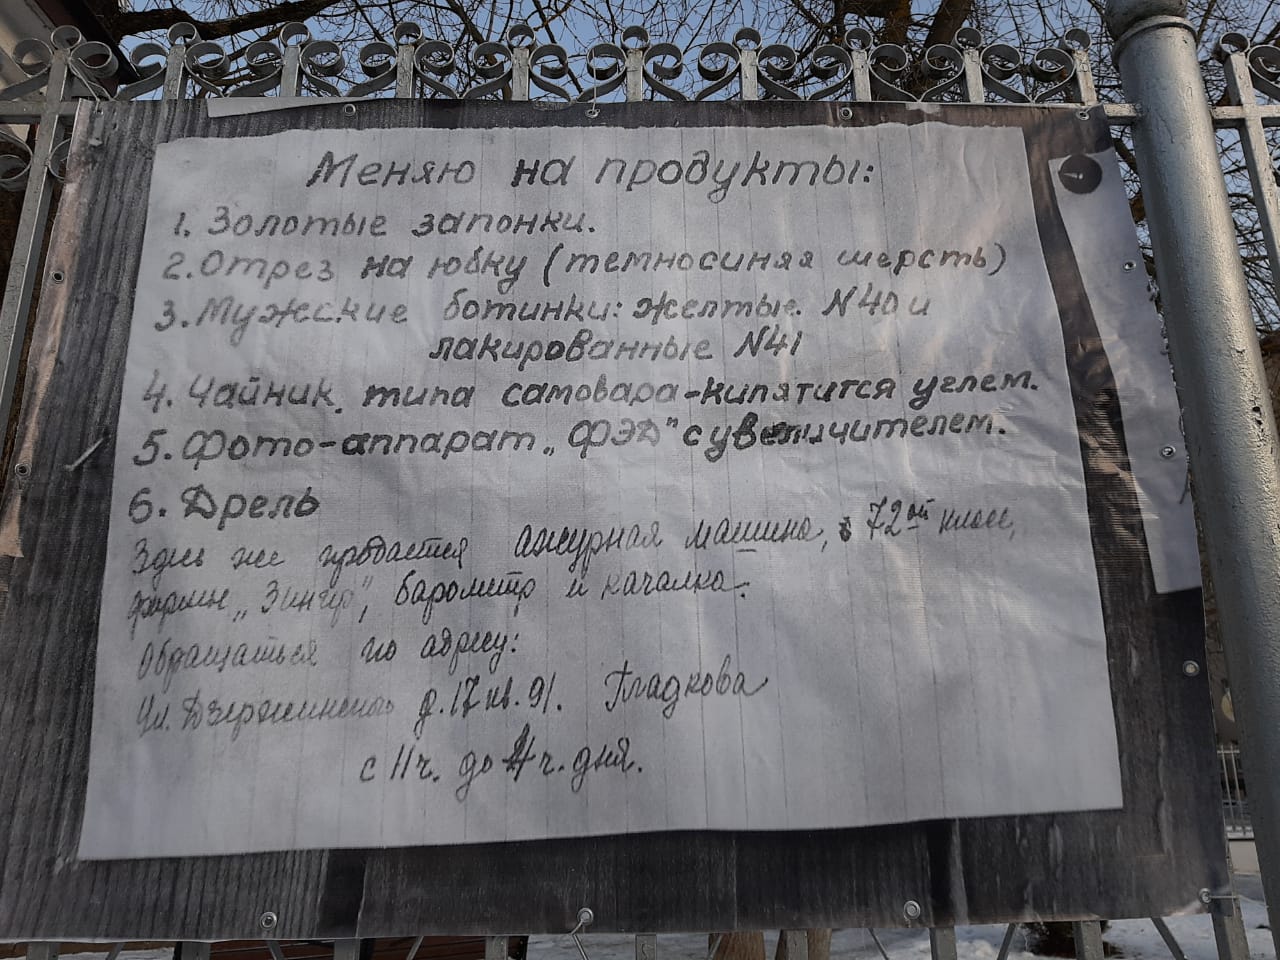 Меняю на продукты:
1. Золотые запонки.
2. Отрез на юбку (темносиняя шерсть)
3. Мужские ботинки: желтые N40 и
лакированные N41
4. Чайник типа самовара-кипятится углем.
5. Фото-аппарат „ФЭД" с увеличителем.
6. Дрель
Здесь же продается ажурная машина, 72ой класс,
фирмы „Зингер", барометр и качалка.
Обращаться по адресу:
Ул. Дзержинского д.17 кв.91. Гладкова
с 11 ч. до 4 ч. дня.